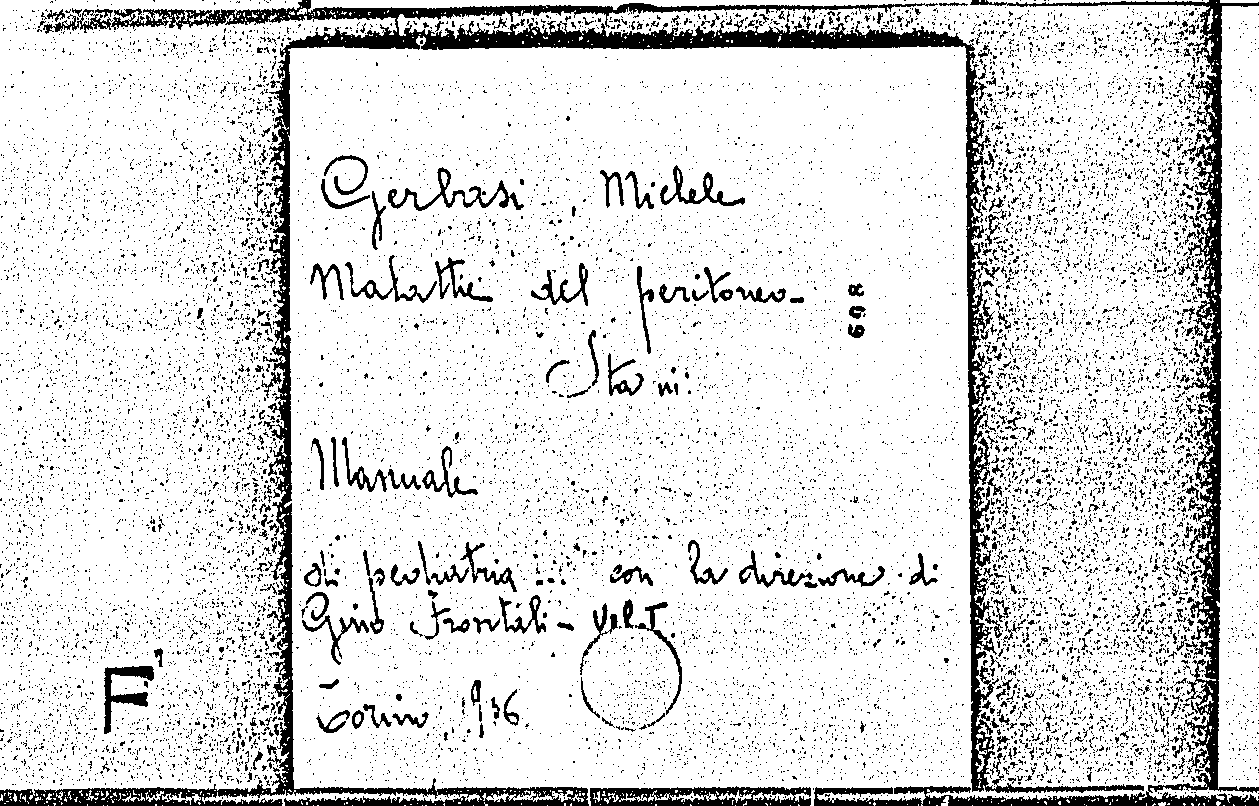 Gerbasi, Michele
Malattie del peritoneo -
698
Sta in:
Manuale
di pediatria ... con la direzione di
Gino Frontali - Vol. I.
Torino 1936.
F